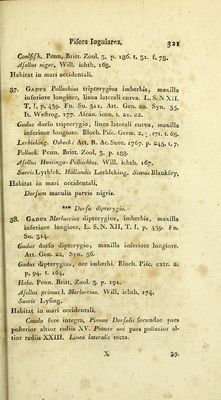 Pisces Iugulares, 321
Coalfish. Penn. Britt. Zool. 3. p. 186. t. 31. f. 78.
Asellus niger. Will. ichth. 168.
Habitat in mari occidentali.
37. GADUS Pollachius tripterygius imberbis, maxilla
inferiore longiore, linea laterali curva. L. S. N XII.
T. I. p. 439. Fn. Su. 311. Art. Gen. 20. Syn. 35.
It. Westrog. 177. Ascan. icon. t. 21. 22.
Gadus dorso tripterygio, linea laterali curva, maxilla
inferiore longiore. Bloch. Pisc. Germ. 2. p. 171. t. 68.
Lerbleking. Osbeck: Act. R. Ac. Suec. 1767. p. 245. t. 7.
Pollack. Penn. Britt. Zool. 3. p. 188.
Asellus Huitingo-Pollachius. Will. ichth. 167.
Suecis Lyrblek. Hallandis Lerbleking. Scanis Blanksey,
Habitat in mari occidentali,
Dorsum maculis parvis nigris.
** Dorso dipterygio.
38. GADUS Merluccius dipterygius, imberbis, maxilla
inferiore longiore, L. S. N. XII, T. I. p. 439. Fn.
Su. 314.
Gadus dorso dipterygio, maxilla inferiore longiore.
Art. Gen. 22. Syn. 36.
Gadus dipterygius, ore imberbi. Bloch. Pisc. extr. 2.
p. 94. t. 164.
Hake. Penn. Britt. Zool. 3. p. 191.
Asellus primus l. Merluccius. Will. ichth. 174.
Suecis Lysing.
Habitat in mari occidentali.
Cauda fere integra, Pinnae Dorsalis secundae pars
posterior altior radiis XV. Pinnae ani pars posterior al-
tior radiis XXIII. Linea lateralis recta.
X 39.